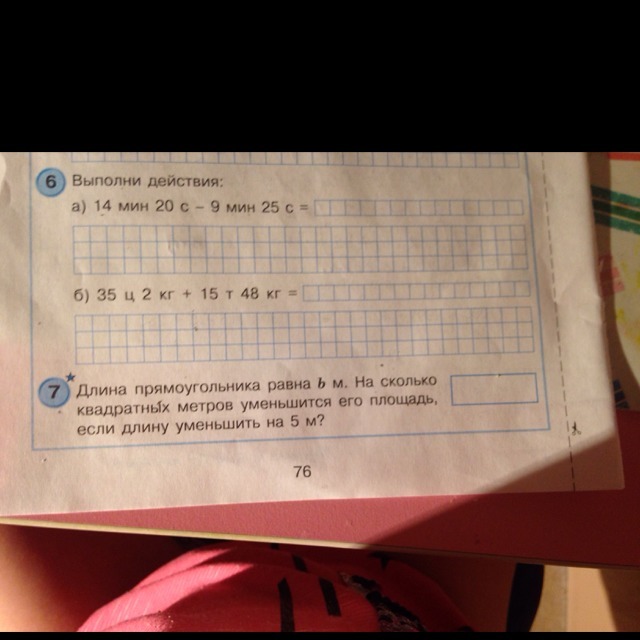 6 Выполни действия:
а) 14 мин 20 с – 9 мин 25 с =
б) 35 ц 2 кг + 15 т 48 кг =
7* Длина прямоугольника равна b м. На сколько
квадратных метров уменьшится его площадь,
если длину уменьшить на 5 м?
76